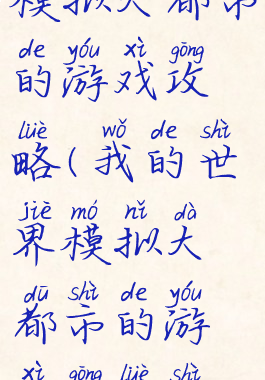 模拟大都市
de yóu xì gōng
的游戏攻
lüè wǒ de shì
略(我的世
jiè mó nǐ dà
界模拟大
dū shì de yóu
都市的游
xì gōng lüè shì